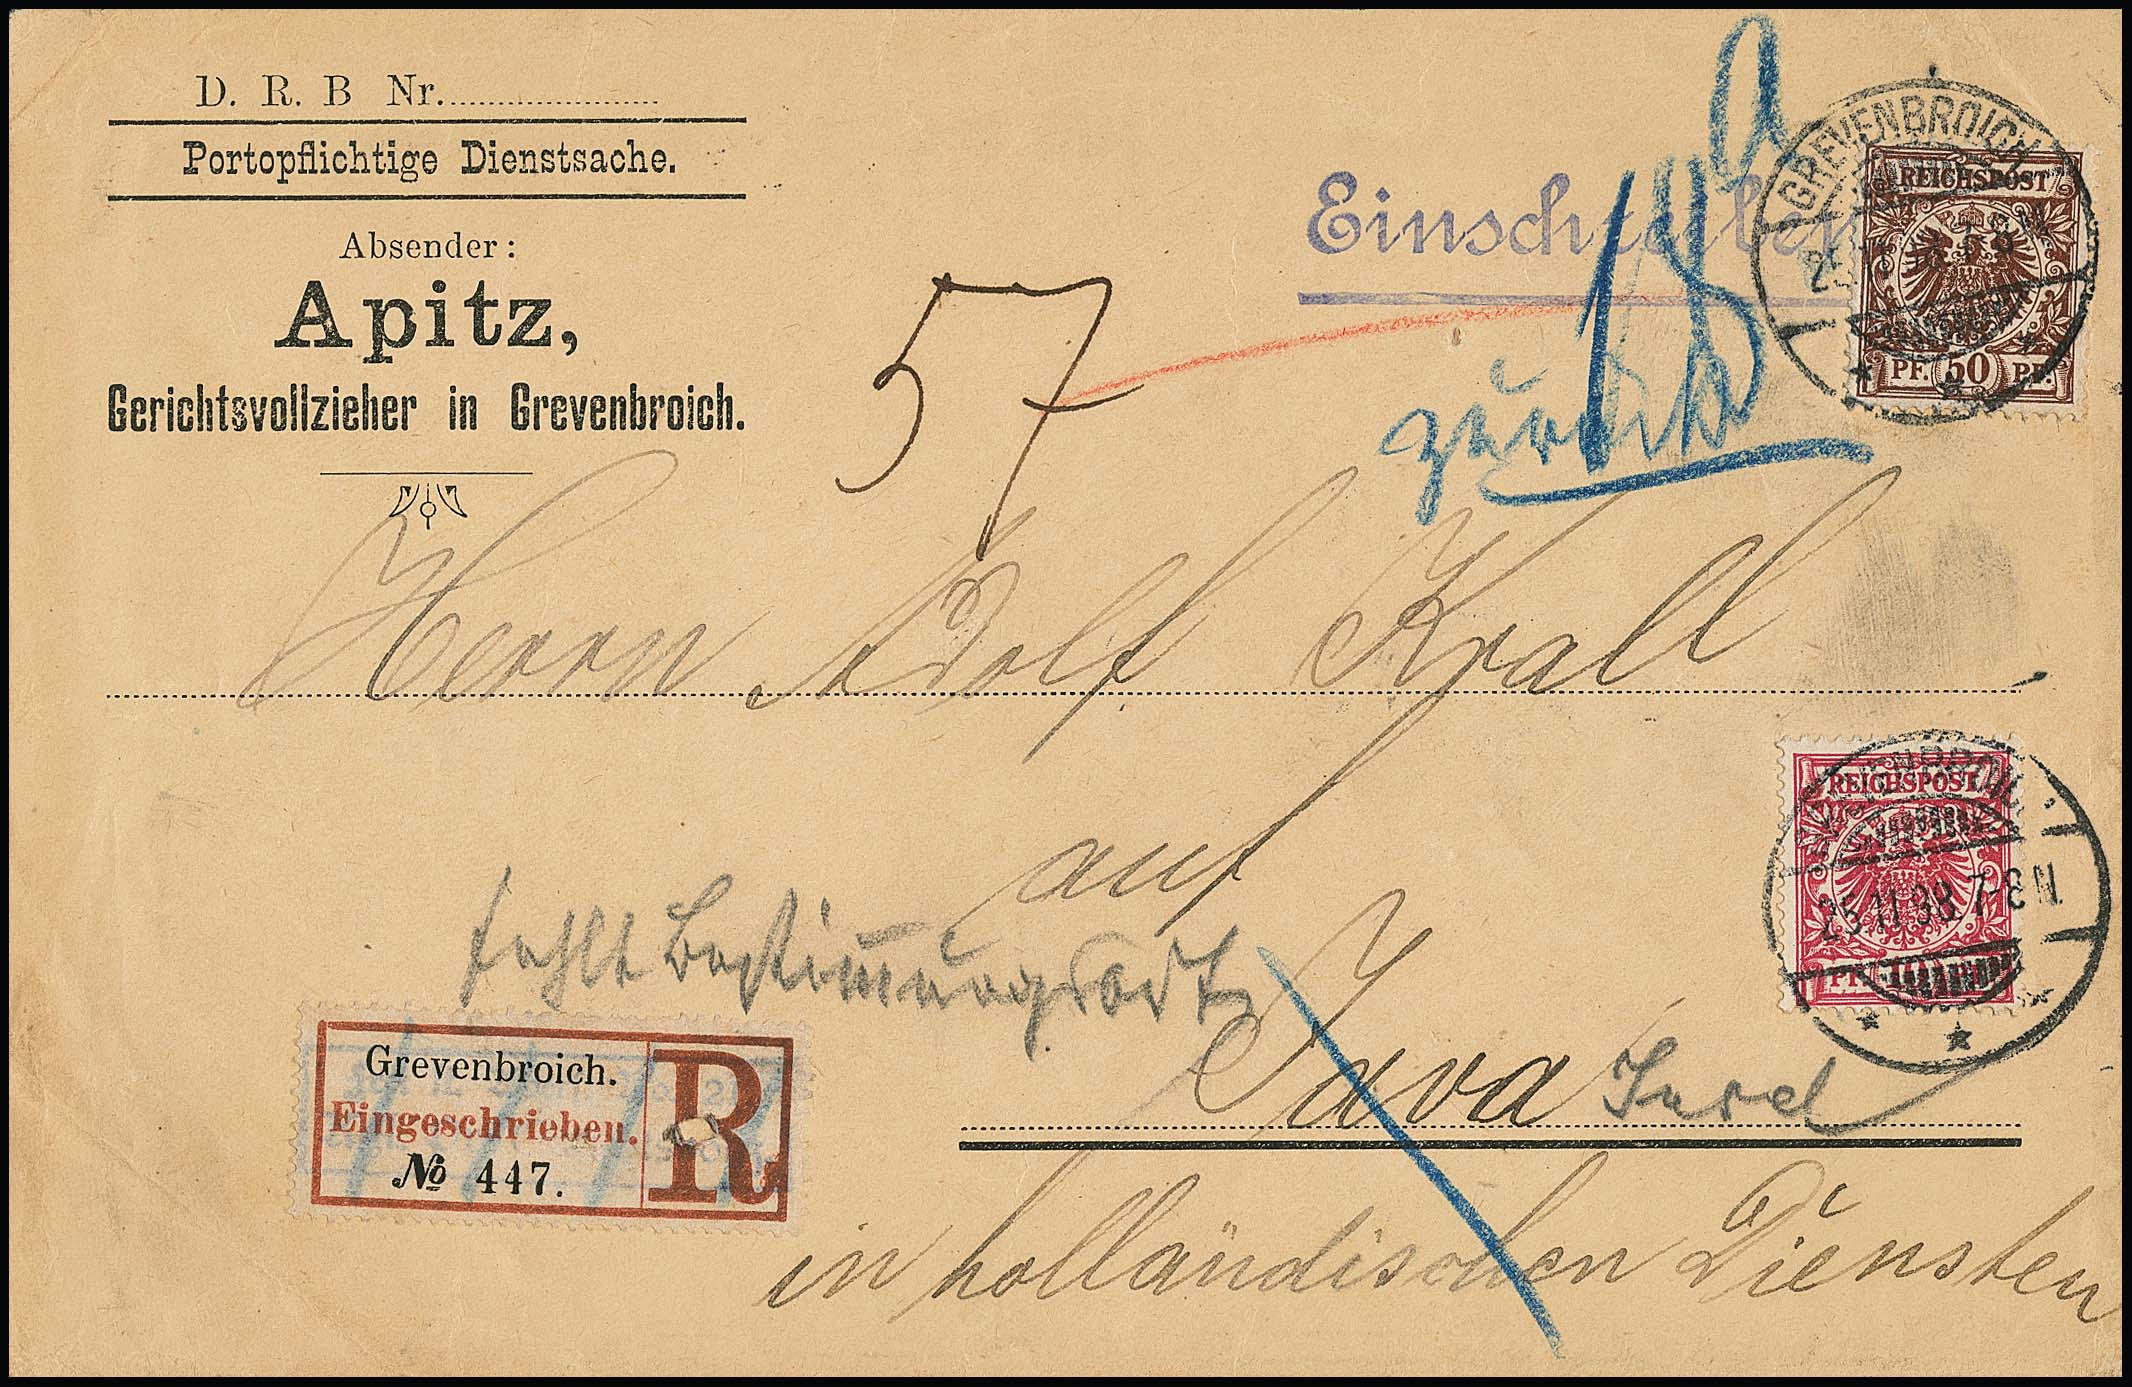 D. R. B Nr.
Portopflichtige Dienstsache.
Absender:
Apitz,
Gerichtsvollzieher in Grevenbroich.
57
Einschreiben
zurück
GREVENBROICH
REICHSPOST
PF. 50 PF.
Herrn Adolf Krall
auf
fehlt Bestimmungsort
Java Insel
in holländischen Diensten
REICHSPOST
25.11.98.7-8N
Grevenbroich.
Eingeschrieben.
№ 447.
R